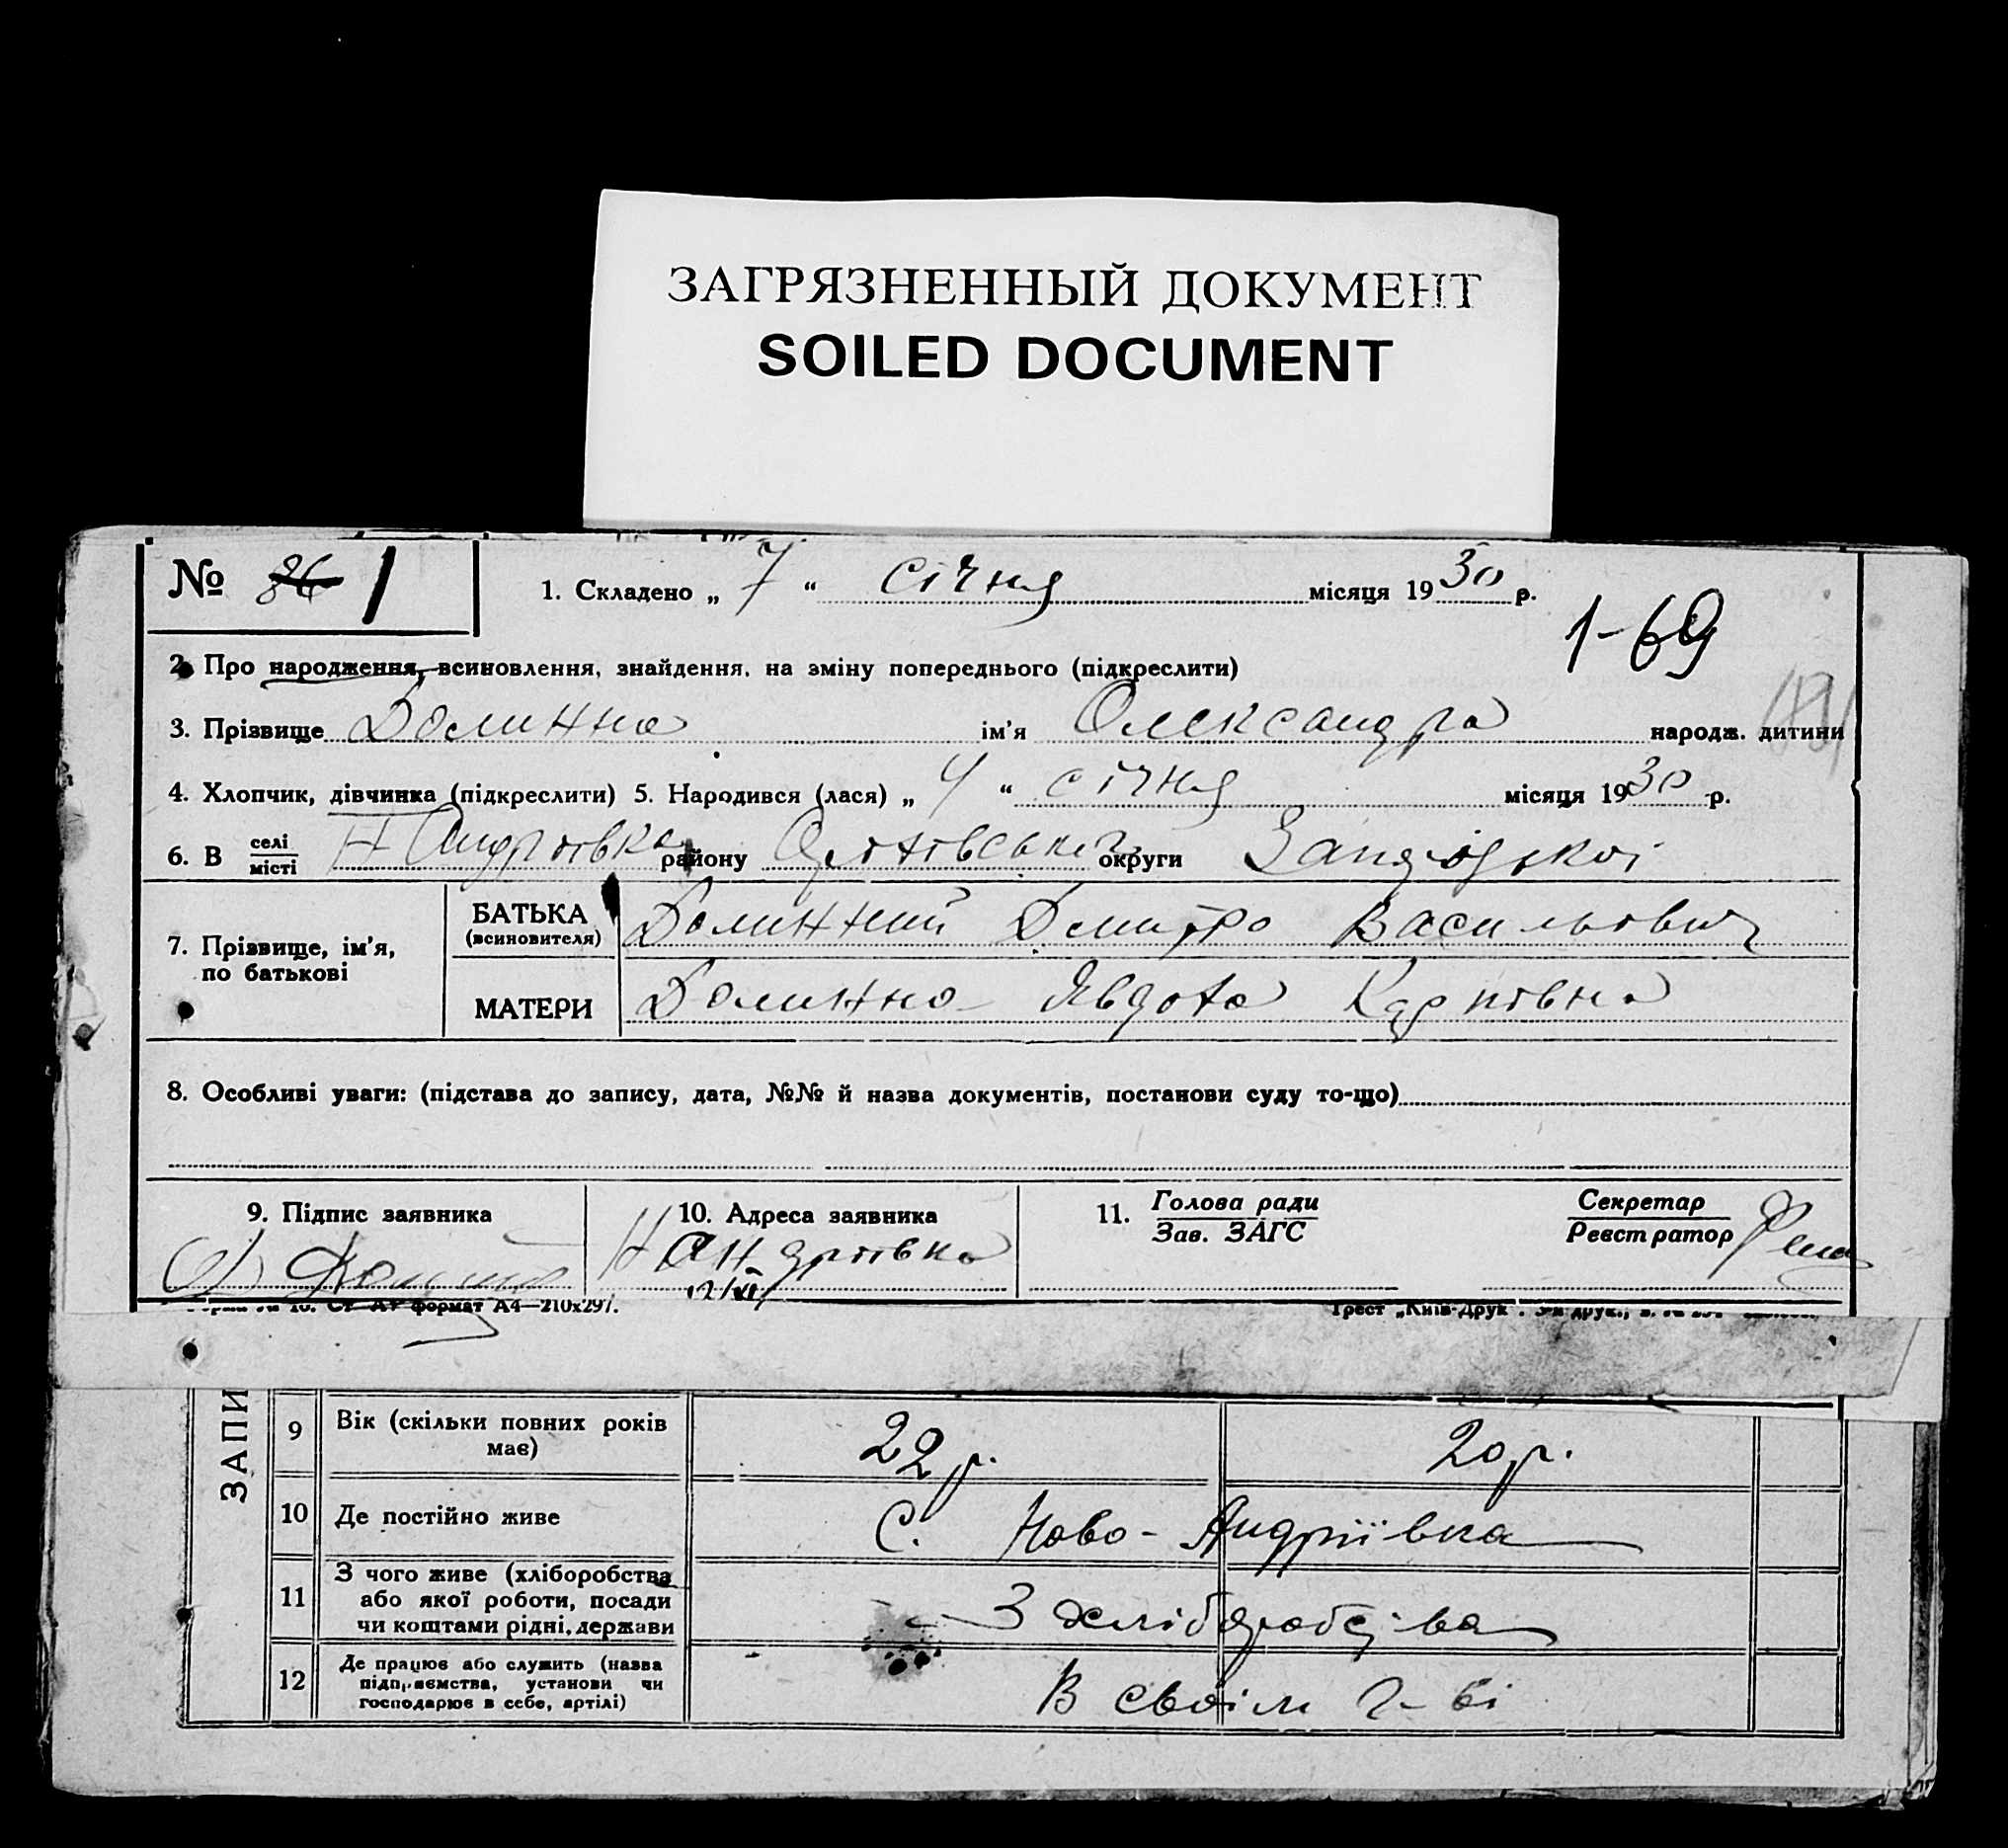 ЗАГРЯЗНЕННЫЙ ДОКУМЕНТ
SOILED DOCUMENT
№ 86 1
1. Складено „ 7 “ січня місяця 1930 р.
1-69
2. Про народження, всиновлення, знайдення, на зміну попереднього (підкреслити)
3. Прізвище Долинна ім'я Олександра народж. дитини
4. Хлопчик, дівчинка (підкреслити) 5. Народився (лася) „ 4 “ січня місяця 1930 р.
6. В селі місті Н Андріївка району округи Запорізької
7. Прізвище, ім'я, по батькові
БАТЬКА (всиновителя) Долинний Дмитро Васильович
МАТЕРИ Долинна Явдота Карпівна
8. Особливі уваги: (підстава до запису, дата, №№ й назва документів, постанови суду то-що)
9. Підпис заявника
10. Адреса заявника
Н Андріївка
11. Голова ради
Зав. ЗАГС
Секретар
Реєстратор
формат А4—210х297.
Трест „Київ-Друк“.
ЗАПИ
9 Вік (скільки повних років має) 22 р. 20 р.
10 Де постійно живе С. Ново-Андріївка
11 З чого живе (хліборобства або якої роботи, посади чи коштами рідні, держави З хліборобства
12 Де працює або служить (назва підприємства, установи чи господарює в себе, артілі) В своїм г-ві